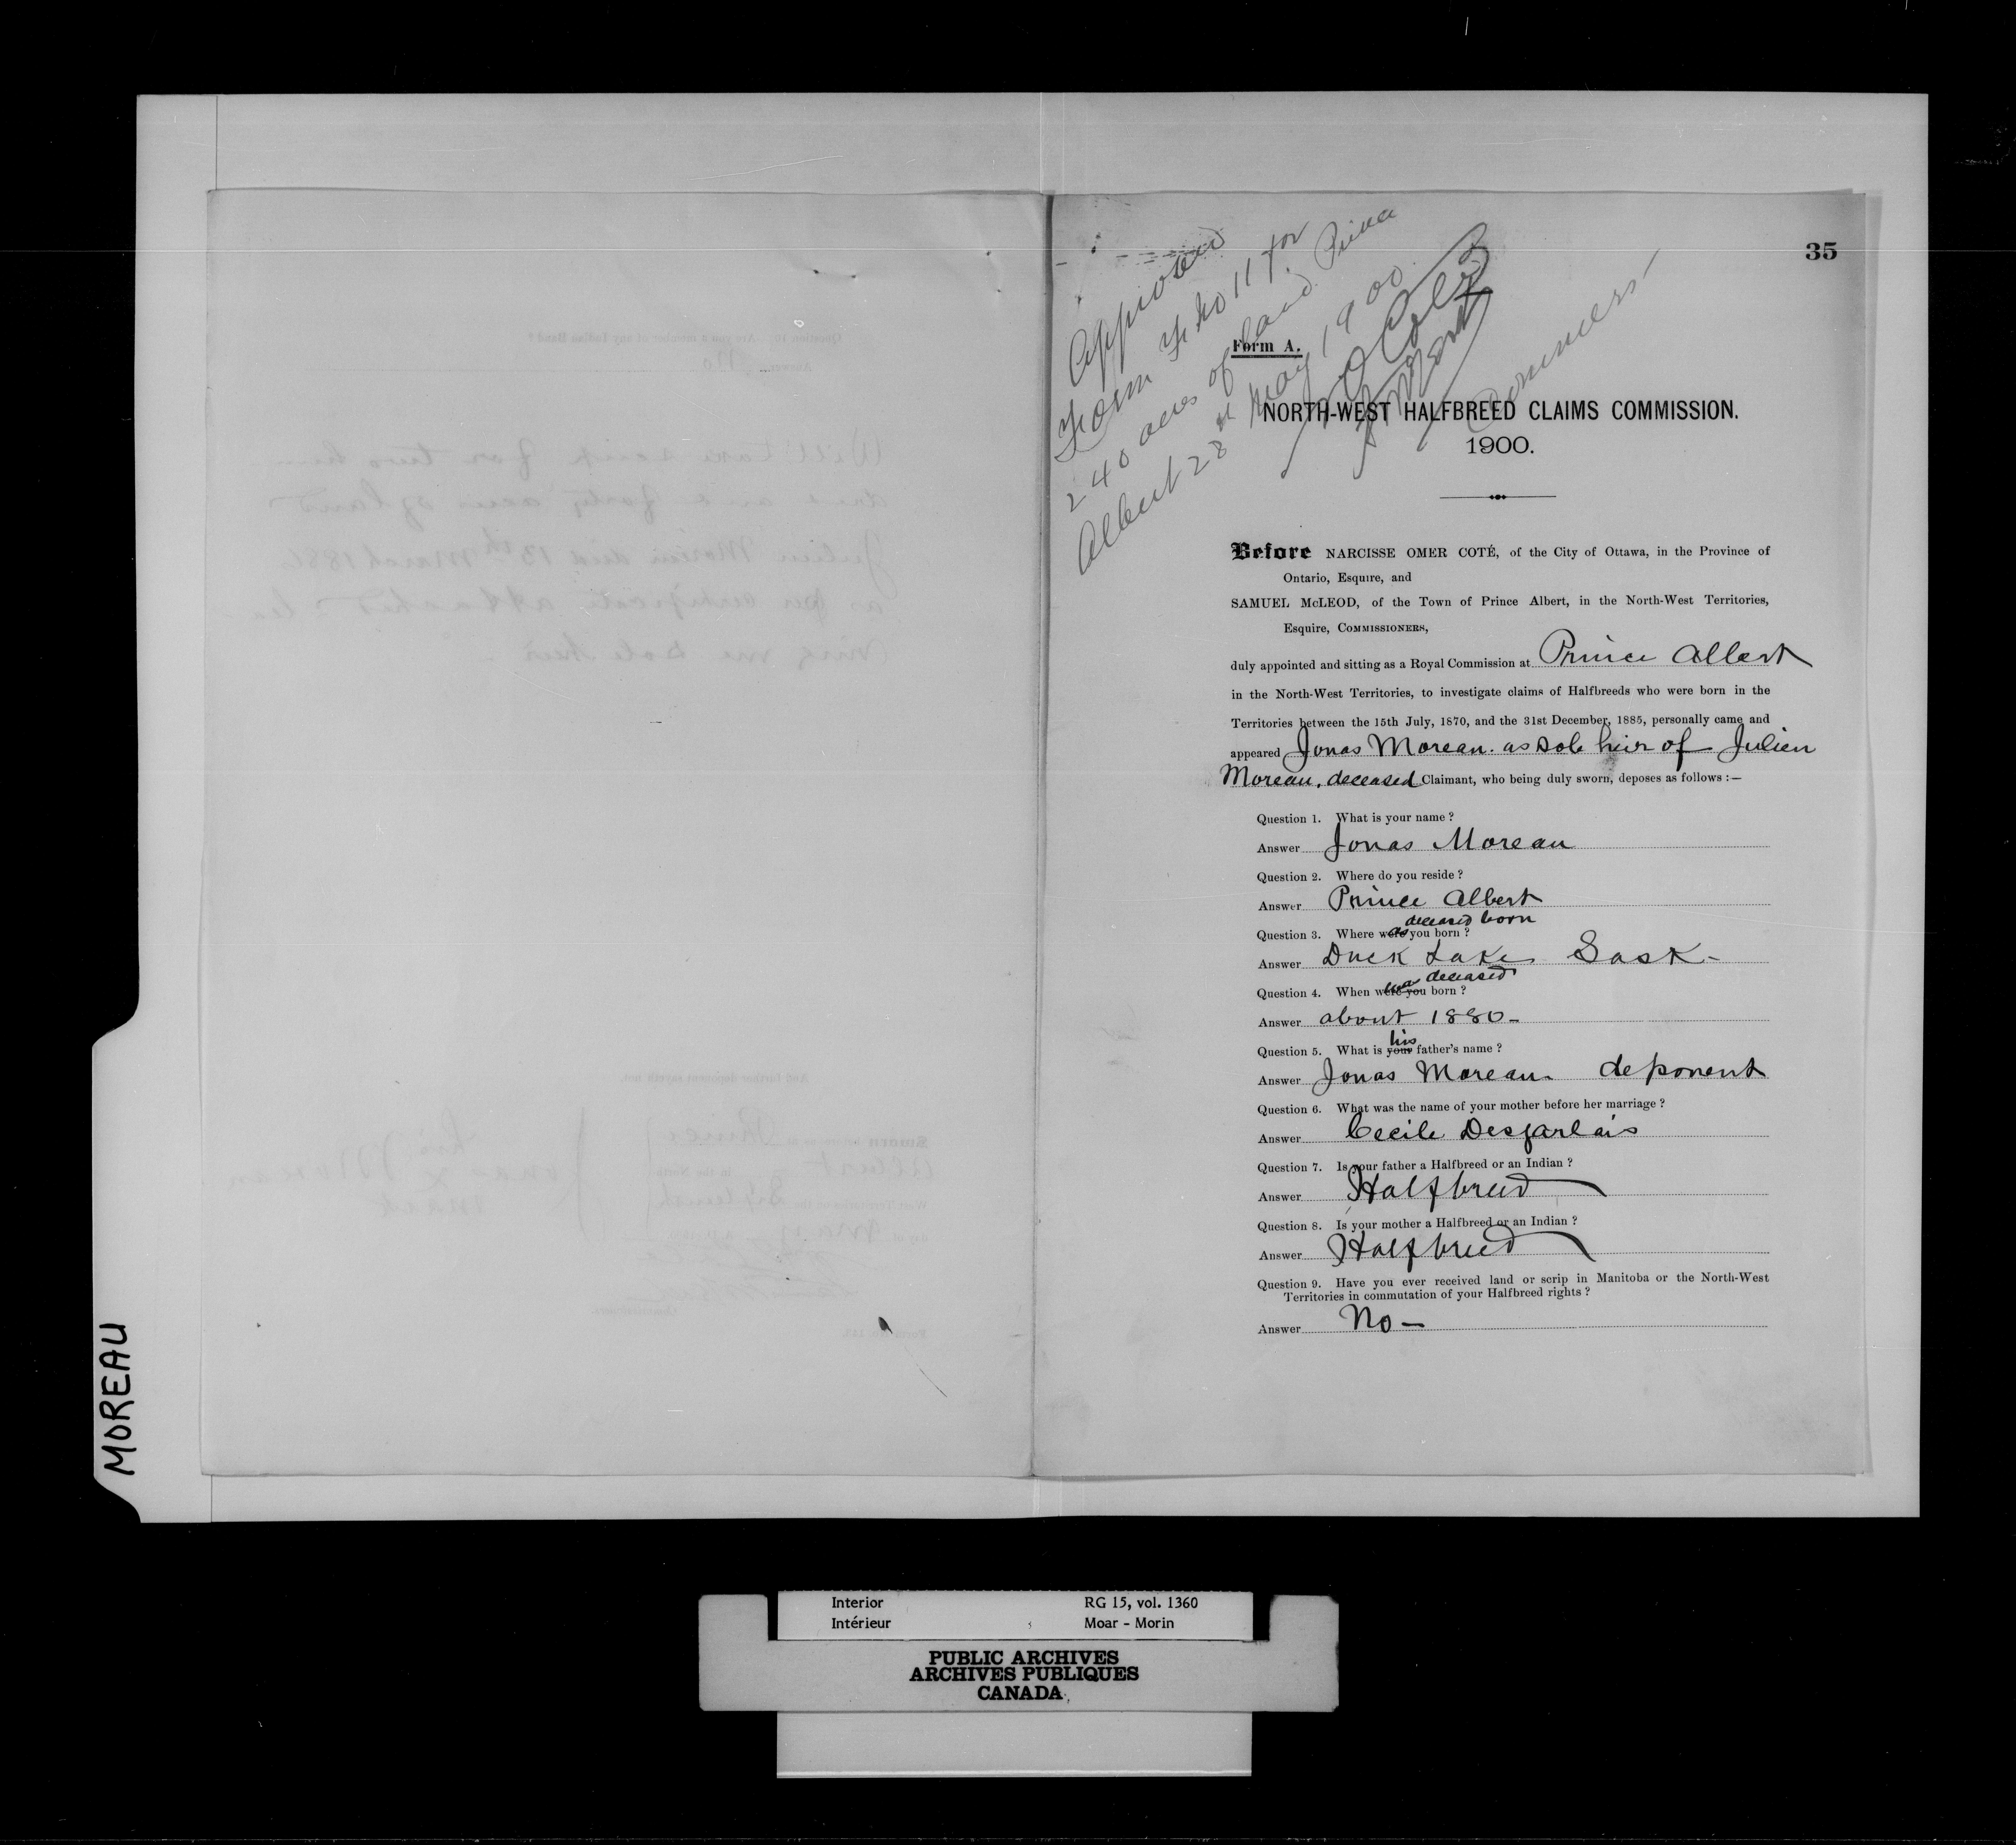 35
Approved
Form F. No 11 for
240 acres of land. Prince
Albert 28th May 1900.
Form A.
NORTH-WEST HALFBREED CLAIMS COMMISSION.
1900.
Before NARCISSE OMER COTÉ, of the City of Ottawa, in the Province of
Ontario, Esquire, and
SAMUEL McLEOD, of the Town of Prince Albert, in the North-West Territories,
Esquire, COMMISSIONERS,
duly appointed and sitting as a Royal Commission at Prince Albert
in the North-West Territories, to investigate claims of Halfbreeds who were born in the
Territories between the 15th July, 1870, and the 31st December, 1885, personally came and
appeared Jonas Moreau. as sole heir of Julien
Moreau, deceased Claimant, who being duly sworn, deposes as follows :—
Question 1. What is your name ?
Answer Jonas Moreau
Question 2. Where do you reside ?
Answer Prince Albert
deceased born
Question 3. Where was you born ?
Answer Duck Lake Sask-
was deceased
Question 4. When were you born ?
Answer about 1880-
his
Question 5. What is your father's name ?
Answer Jonas Moreau deponent
Question 6. What was the name of your mother before her marriage ?
Answer Cecile Desjarlais
Question 7. Is your father a Halfbreed or an Indian ?
Answer Halfbreed
Question 8. Is your mother a Halfbreed or an Indian ?
Answer Halfbreed
Question 9. Have you ever received land or scrip in Manitoba or the North-West
Territories in commutation of your Halfbreed rights ?
Answer No-
MOREAU
Interior RG 15, vol. 1360
Intérieur Moar - Morin
PUBLIC ARCHIVES
ARCHIVES PUBLIQUES
CANADA